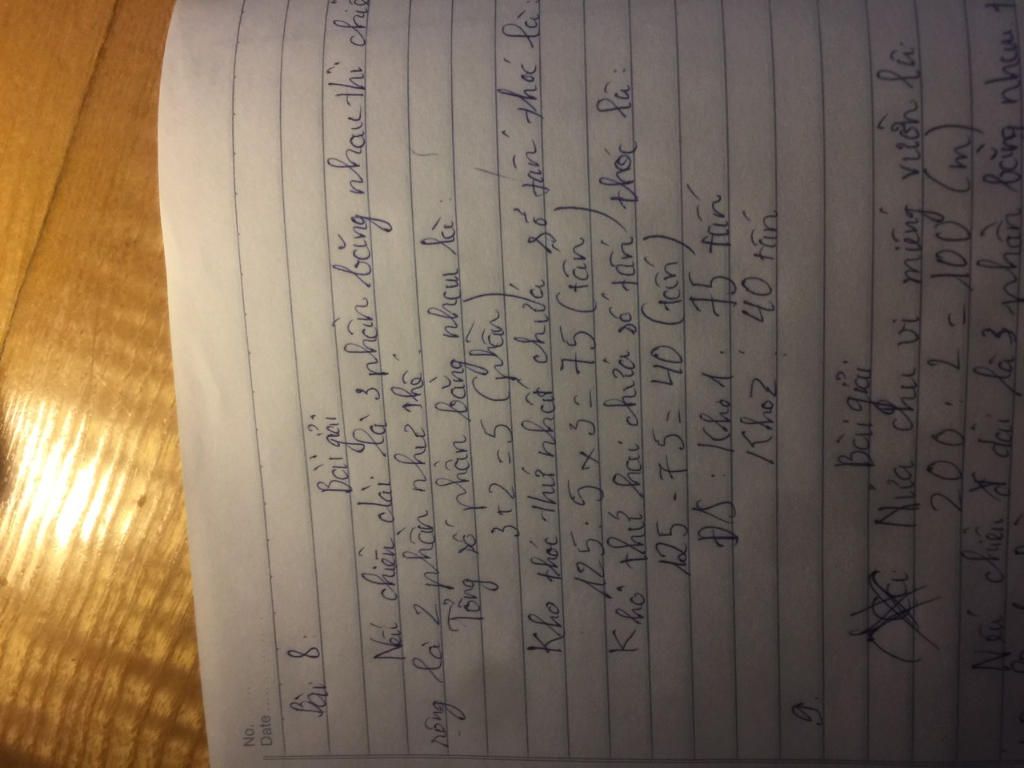 No.
Date
Bài 8:
Bài giải
Nếu chiều dài là 3 phần bằng nhau thì chiề
rộng là 2 phần như thế.
Tổng số phần bằng nhau là:
3+2=5 (phần)
Kho thóc thứ nhất chứa số tấn thóc là:
125:5x3=75 (tấn)
Khô thứ hai chứa số tấn thóc là:
125-75=40 (tấn)
ĐS: Kho 1: 75 tấn
Kho 2: 40 tấn
9.
Bài giải
Nửa chu vi miếng vườn là
200:2=100 (m)
Nếu chiều dài là 3 phần bằng nhau t